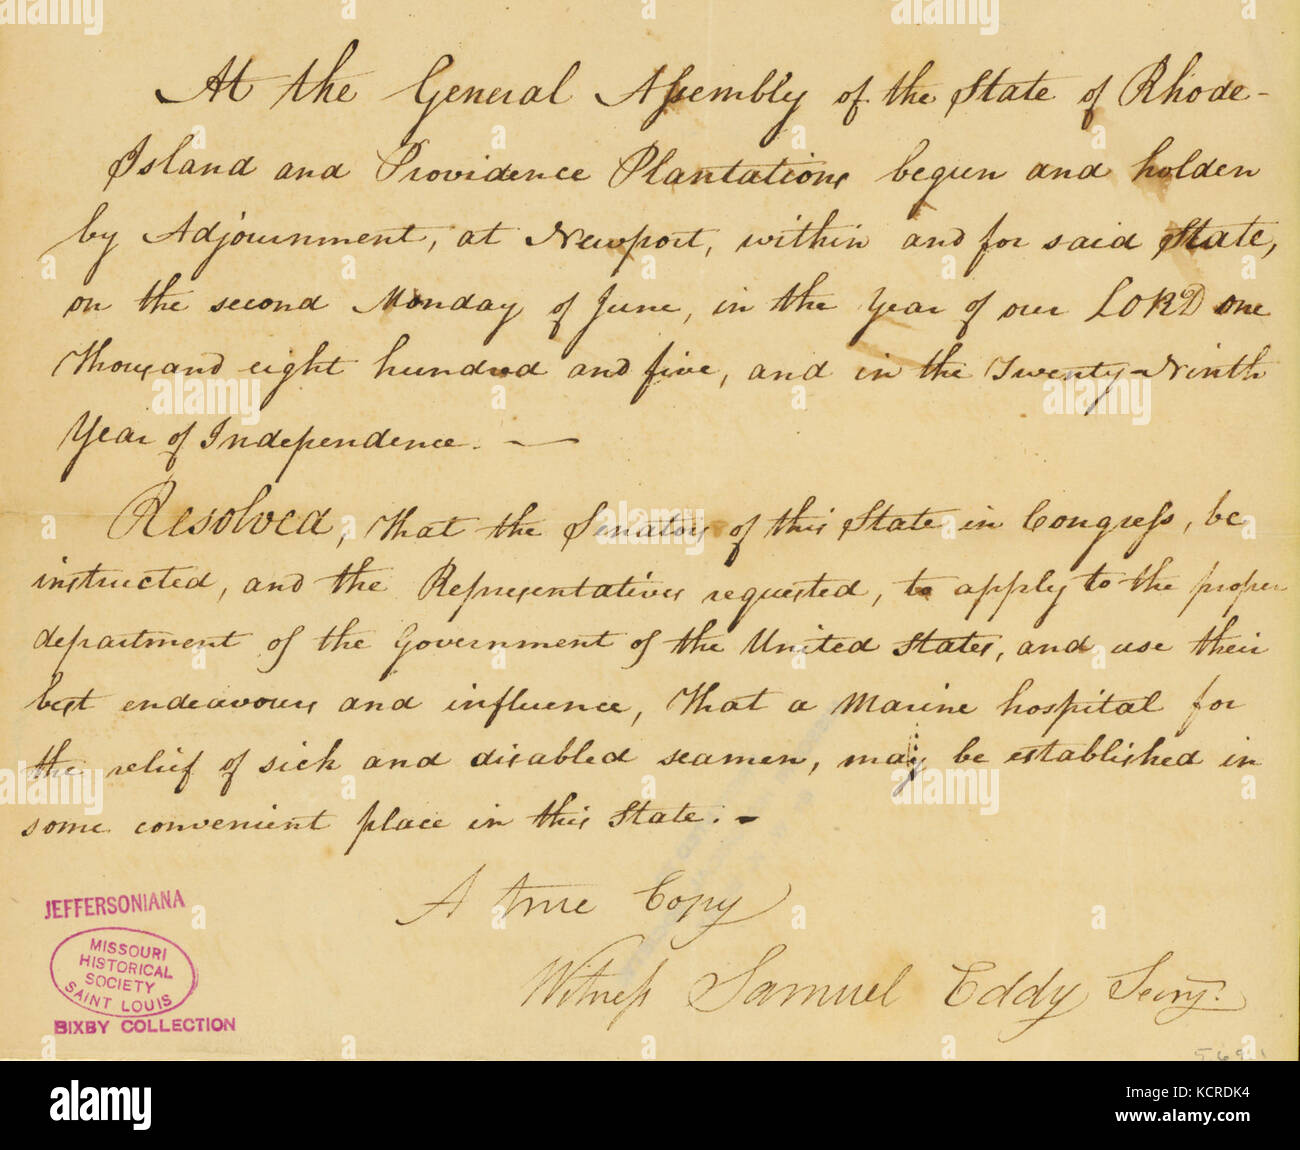 At the General Assembly of the State of Rhode-
Island and Providence Plantations begun and holden
by Adjournment, at Newport, within and for said State,
on the second Monday of June, in the Year of our LORD one
thousand eight hundred and five, and in the Twenty-Ninth
Year of Independence. —
Resolved, that the Senators of this State in Congress, be
instructed, and the Representatives requested, to apply to the proper
department of the Government of the United States, and use their
best endeavours and influence, that a marine hospital for
the relief of sick and disabled seamen, may be established in
some convenient place in this State. -
A true Copy
Witness Samuel Eddy Secry.
JEFFERSONIANA
MISSOURI
HISTORICAL
SOCIETY
SAINT LOUIS
BIXBY COLLECTION
alamy
Image ID: KCRDK4
www.alamy.com